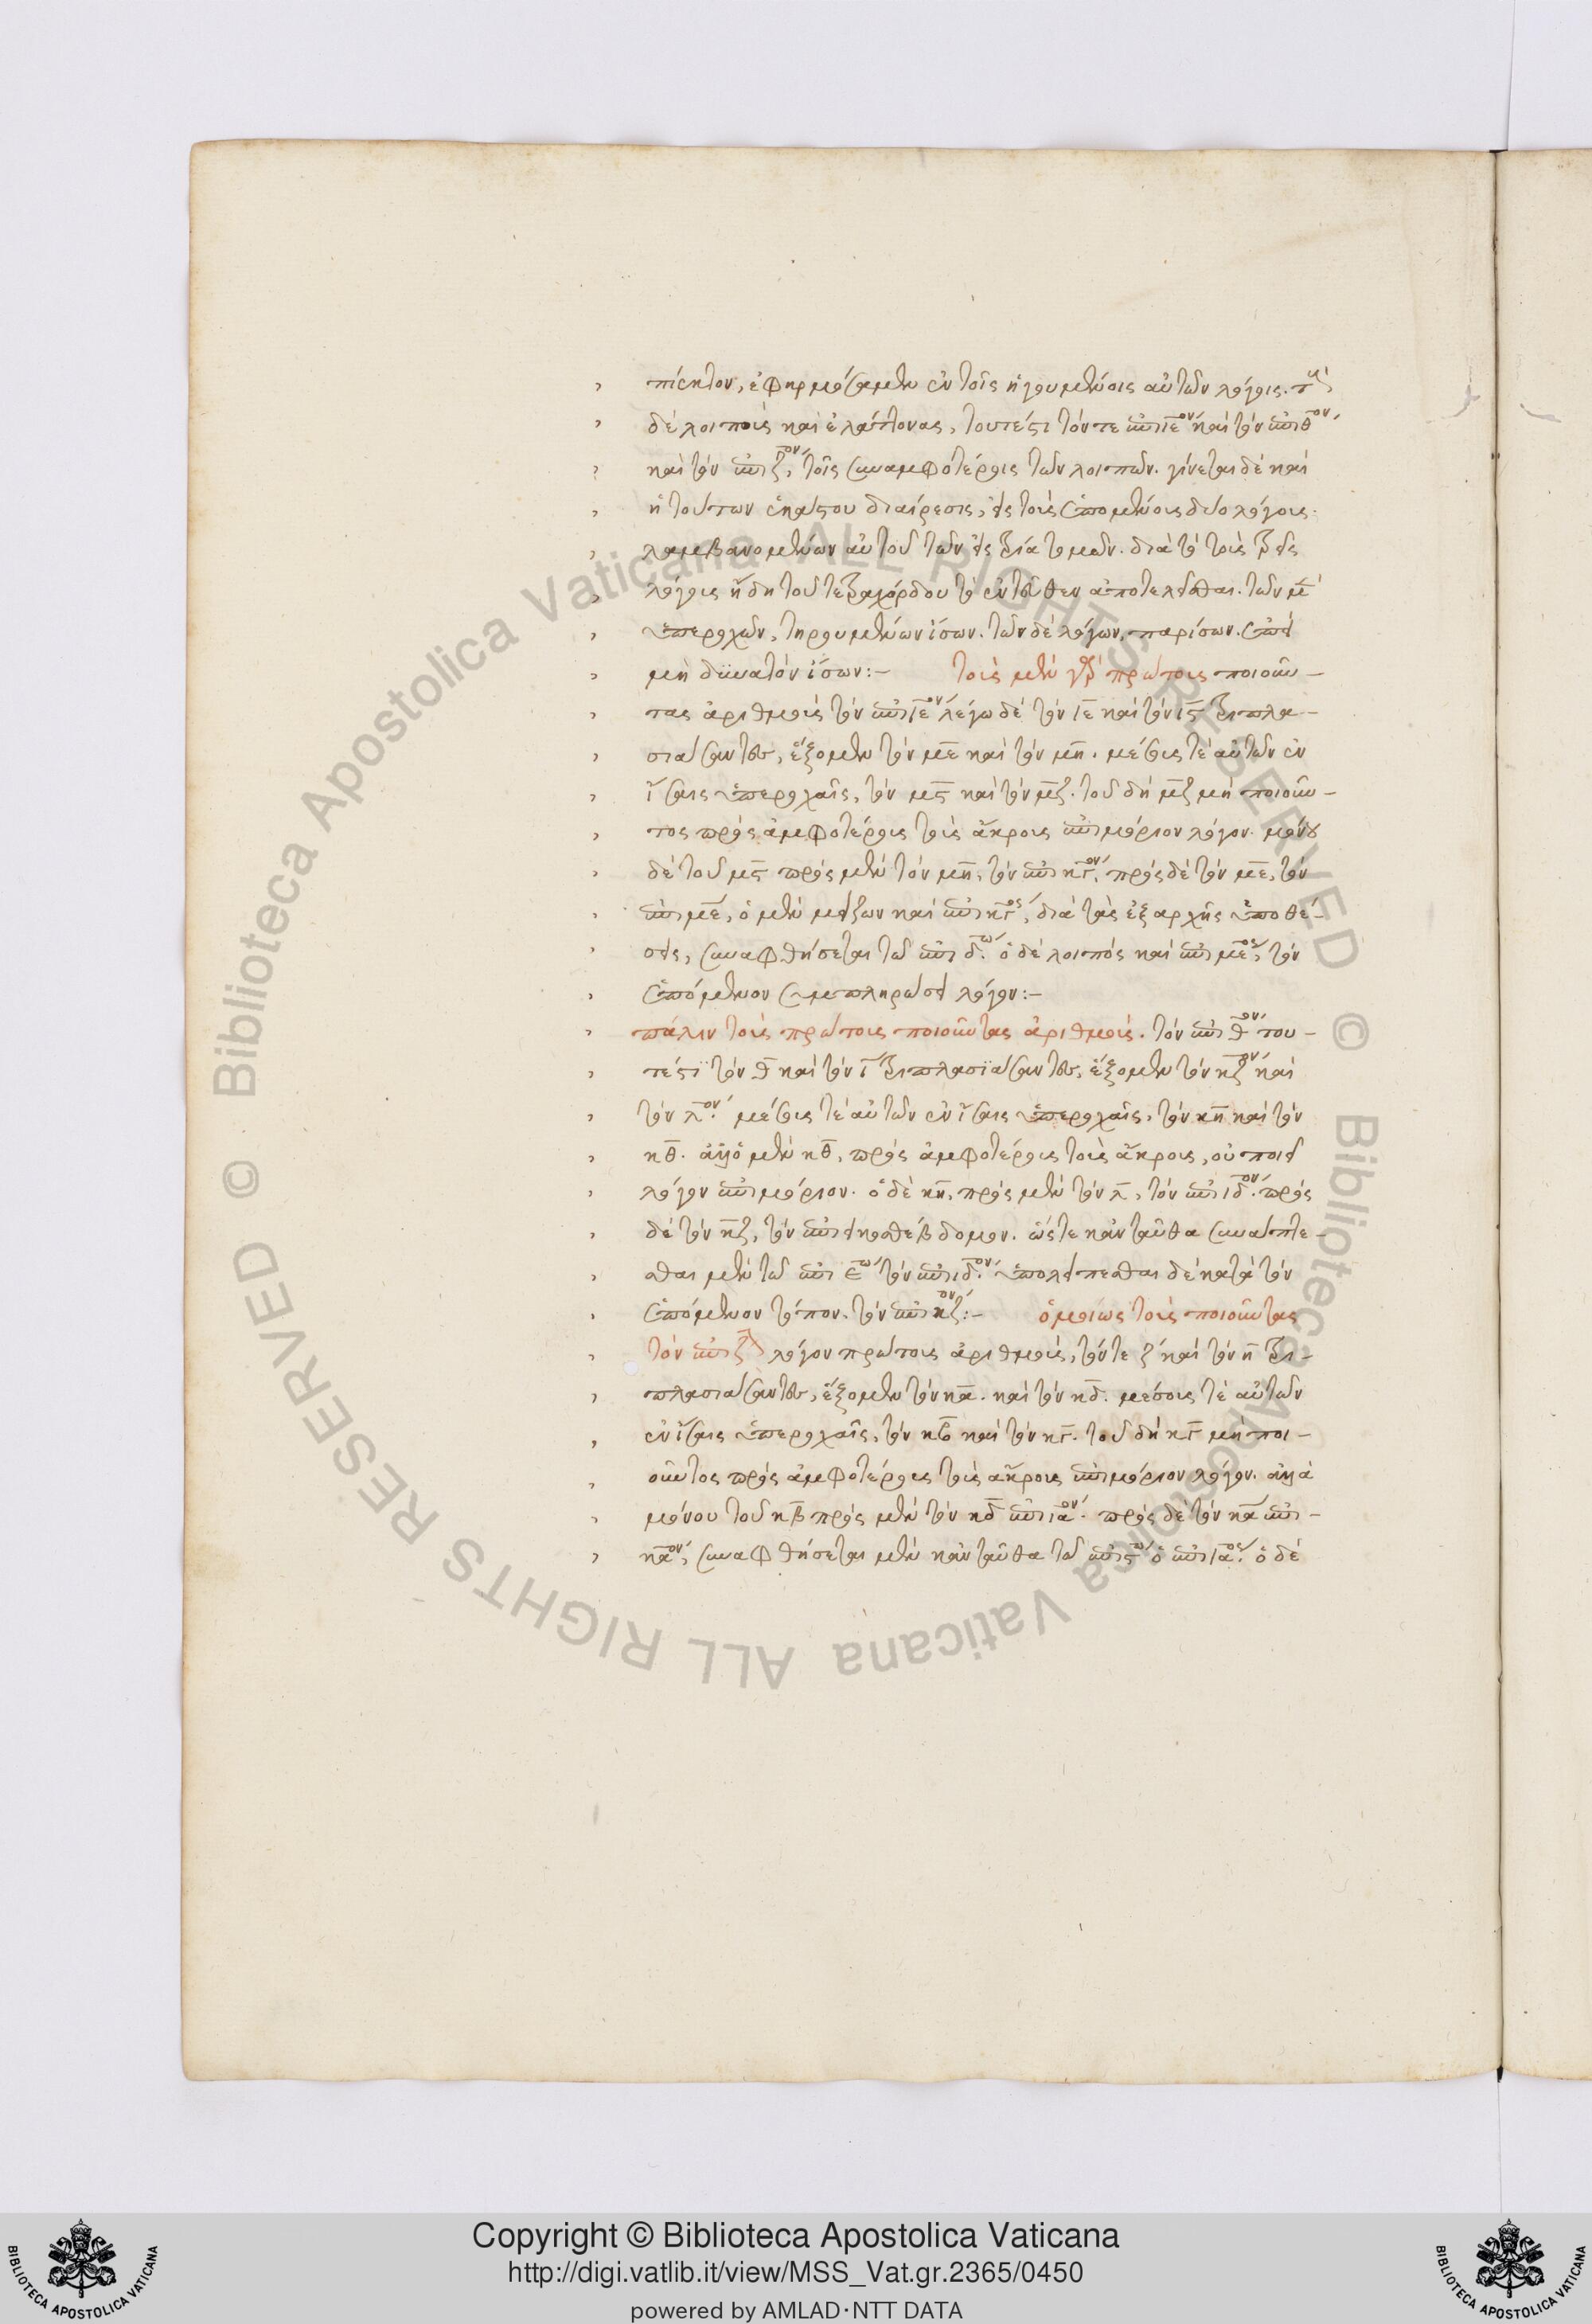 πίκητον, ἐφηρμόσαμεν ἐν τοῖς ἡγουμένοις αὐτῶν λόγοις. τοὺς
δὲ λοιποὺς καὶ ἐλάττονας, τουτέστι τόν τε ἐπὶ ιε̄ον καὶ τὸν ἐπὶ θ̄ον
καὶ τὸν ἐπὶ ζ̄ον, τοῖς συναμφοτέροις τῶν λοιπῶν. γίνεται δὲ καὶ
ἡ τούτων ἑκάστου διαίρεσις, εἰς τοὺς ἑπομένους δύο λόγους.
λαμβανομένων αὐτοῦ τῶν εἰς τρία τμῶν. διὰ τὸ τοὺς τρεῖς
λόγους ἤδη τοῦ τετραχόρδου τὸ ἐντεῦθεν ἀποτελεῖσθαι. τῶν μὲν
ὑπεροχῶν, τηρουμένων ἴσων. τῶν δὲ λόγων, παρίσων. ἐπεὶ
μὴ δυνατὸν ἴσων:– τοὺς μὲν γὰρ πρώτους ποιοῦν–
τας ἀριθμοὺς τὸν ἐπὶ ιε̄ον λέγω δὲ τὸν ιε̄ καὶ τὸν ις̄ τριπλα–
σιάσαντες, ἕξομεν τὸν με̄ καὶ τὸν μη̄. μέσους τὲ αὐτῶν ἐν
ἴσαις ὑπεροχαῖς, τὸν μς̄ καὶ τὸν μζ̄. τοῦ δὴ μζ̄ μὴ ποιοῦν–
τος πρὸς ἀμφοτέρους τοὺς ἄκρους ἐπιμόριον λόγον. μόνου
δὲ τοῦ μς̄ πρὸς μὲν τὸν μη̄, τὸν ἐπὶ κγ̄ον, πρὸς δὲ τὸν με̄, τὸν
ἐπὶ με̄, ὁ μὲν μείζων καὶ ἐπὶ κγ̄ος, διὰ τὰς ἐξαρχῆς ὑποθέ–
σεις, συναφθήσεται τῶ ἐπὶ δ̄ω. ὁ δὲ λοιπὸς καὶ ἐπὶ με̄ος, τὸν
ἑπόμενον συμπληρώσει λόγον:–
πάλιν τοὺς πρώτους ποιοῦντας ἀριθμοὺς. τὸν ἐπὶ θ̄ον του–
τέστι τὸν θ̄ καὶ τὸν ῑ τριπλασιάσαντες, ἕξομεν τὸν κζ̄ον καὶ
τὸν λ̄ον. μέσους τὲ αὐτῶν ἐν ἴσαις ὑπεροχαῖς, τὸν κη̄ καὶ τὸν
κθ̄. ἀλλ' ὁ μὲν κθ̄, πρὸς ἀμφοτέρους τοὺς ἄκρους, οὐ ποιεῖ
λόγον ἐπιμόριον. ὁ δὲ κη̄, πρὸς μὲν τὸν λ̄, τὸν ἐπὶ ιδ̄ον. πρὸς
δὲ τὸν κζ̄, τὸν ἐπεικοσθέβδομον. ὥστε κἀνταῦθα συνάπτε–
σθαι μὲν τῶ ἐπὶ ε̄ω τὸν ἐπὶ ιδ̄ον. ὑπολείπεσθαι δὲ κατὰ τὸν
ἑπόμενον τόπον. τὸν ἐπὶ κζ̄ον:– ὁμοίως τοὺς ποιοῦντας
τὸν ἐπὶ ζ̄ λόγον πρώτους ἀριθμοὺς, τόν τε ζ̄ καὶ τὸν η̄ τρι–
πλασιάσαντες, ἕξομεν τὸν κᾱ. καὶ τὸν κδ̄. μέσους τὲ αὐτῶν
ἐν ἴσαις ὑπεροχαῖς, τὸν κβ̄ καὶ τὸν κγ̄. τοῦ δὴ κγ̄ μὴ ποι–
οῦντος πρὸς ἀμφοτέρους τοὺς ἄκρους ἐπιμόριον λόγον. ἀλλὰ
μόνου τοῦ κβ̄ πρὸς μὲν τὸν κδ̄ ἐπὶ ιᾱον. πρὸς δὲ τὸν κᾱ ἐπὶ–
κᾱον, συναφθήσεται μὲν κἀνταῦθα τῶ ἐπὶ ς̄ω ὁ ἐπὶ ιᾱος. ὁ δὲ
Copyright © Biblioteca Apostolica Vaticana
http://digi.vatlib.it/view/MSS_Vat.gr.2365/0450
powered by AMLAD·NTT DATA